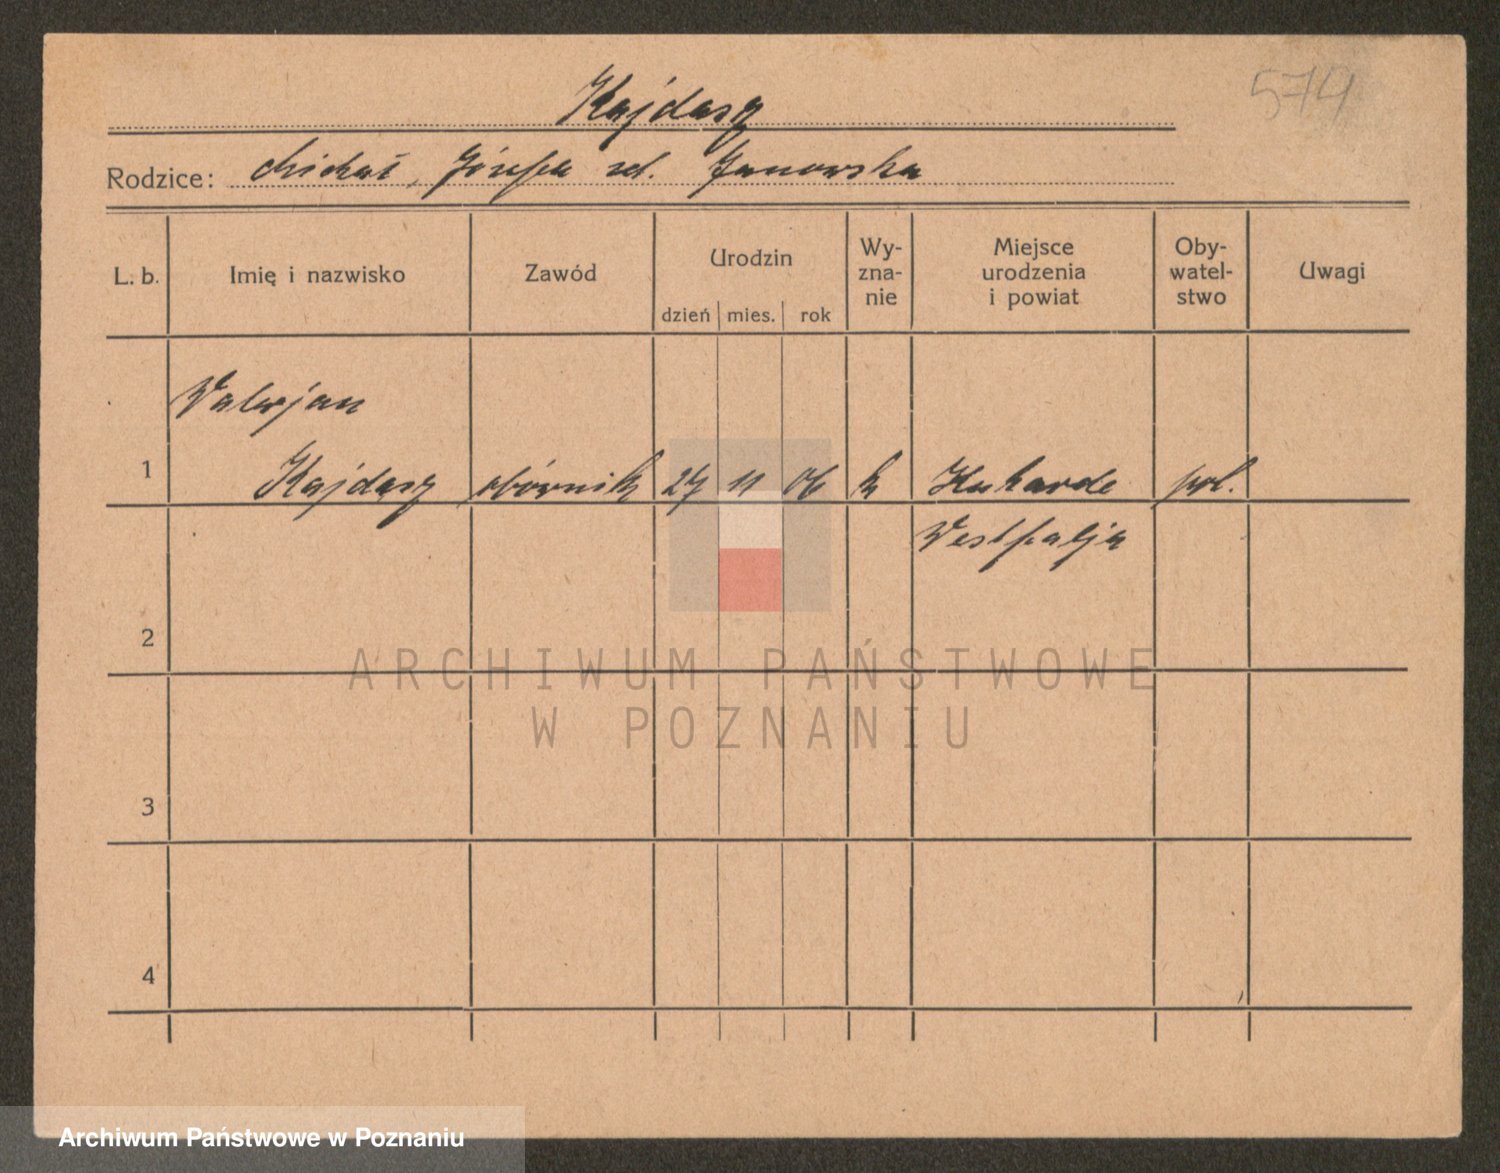 574
Kajdasz
Rodzice: Michał, Józefa zd. Janowska
L. b. Imię i nazwisko Zawód Urodzin dzień mies. rok Wy-zna-nie Miejsce urodzenia i powiat Oby-watel-stwo Uwagi
Walerjan
1 Kajdasz zbiornik 27 11 06 k Hukarde pol.
Westfalja
2
ARCHIWUM PAŃSTWOWE
W POZNANIU
3
4
Archiwum Państwowe w Poznaniu